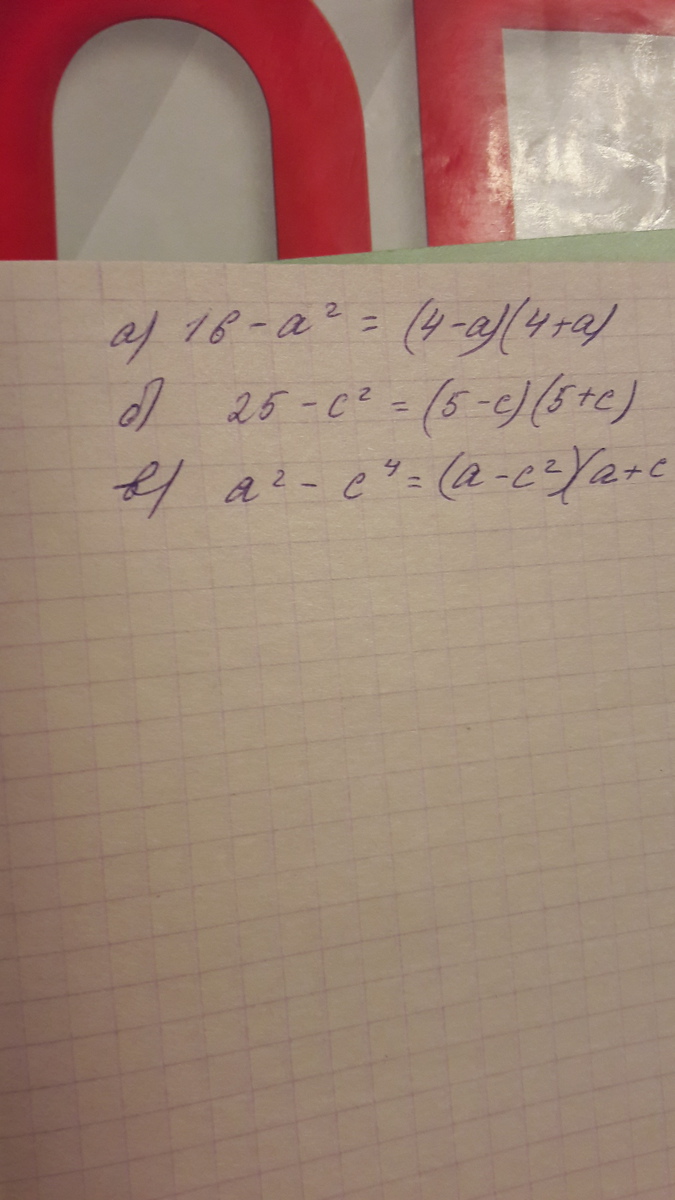 а) 16 - a² = (4-a)(4+a)
б) 25 - c² = (5-c)(5+c)
в) a² - c⁴ = (a-c²)(a+c